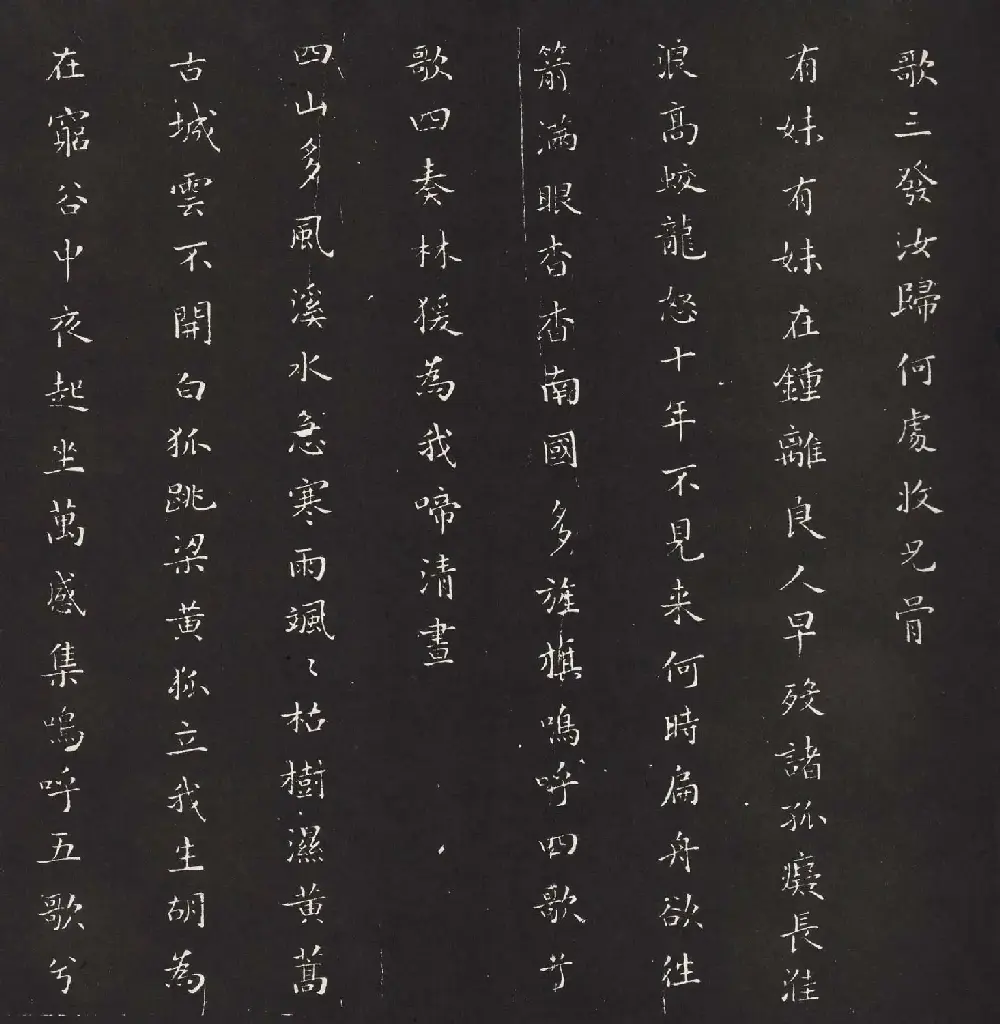 歌三發汝歸何處收兄骨
有妹有妹在鍾離良人早歿諸孤癡長淮
浪高蛟龍怒十年不見来何時扁舟欲往
箭滿眼杳杳南國多旌旗嗚呼四歌兮
歌四奏林猨為我啼清晝
四山多風溪水急寒雨颯〻枯樹濕黄蒿
古城雲不開白狐跳梁黄狐立我生胡為
在窮谷中夜起坐萬感集嗚呼五歌兮